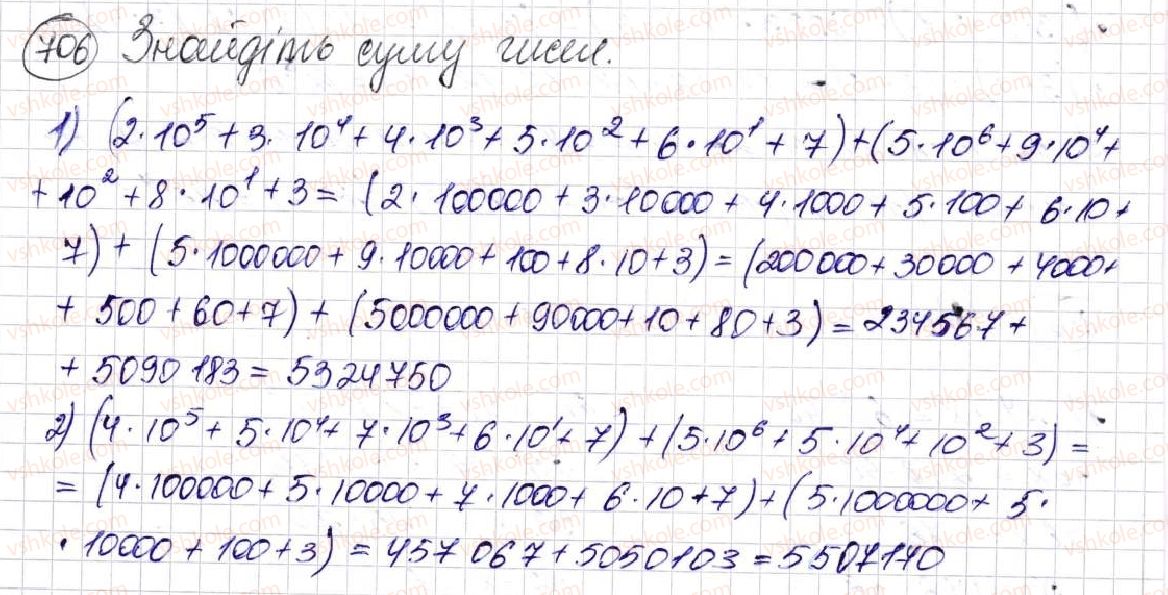 706 Знайдіть суму чисел.
1) (2·10⁵ + 3·10⁴ + 4·10³ + 5·10² + 6·10¹ + 7) + (5·10⁶ + 9·10⁴ +
+ 10² + 8·10¹ + 3 = (2·100000 + 3·10000 + 4·1000 + 5·100 + 6·10 +
7) + (5·1000000 + 9·10000 + 100 + 8·10 + 3) = (200000 + 30000 + 4000 +
+ 500 + 60 + 7) + (5000000 + 90000 + 10 + 80 + 3) = 234567 +
+ 5090183 = 5324750
2) (4·10⁵ + 5·10⁴ + 7·10³ + 6·10¹ + 7) + (5·10⁶ + 5·10⁴ + 10² + 3) =
= (4·100000 + 5·10000 + 7·1000 + 6·10 + 7) + (5·1000000 + 5·
·10000 + 100 + 3) = 457067 + 5050103 = 5507170